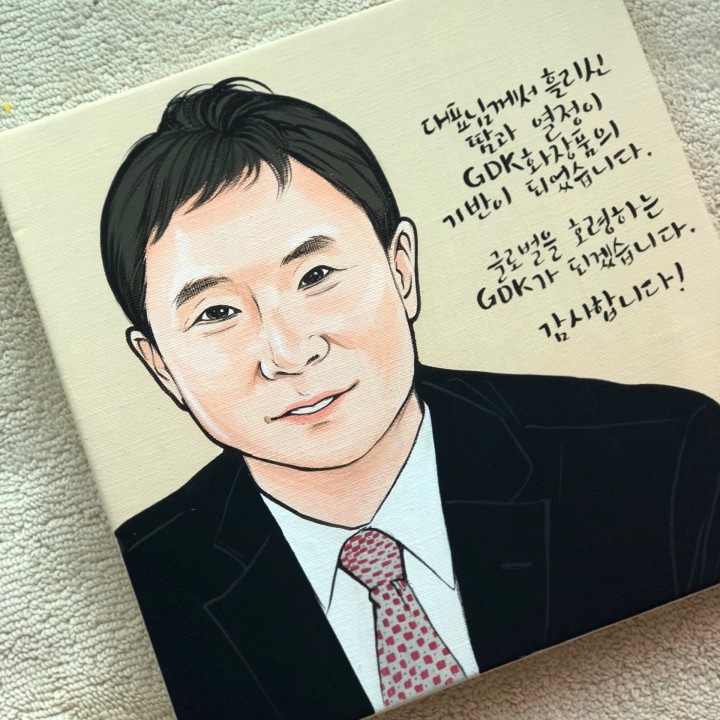 대표님께서 흘리신
땀과 열정이
GDK화장품의
기반이 되었습니다.
글로벌을 호령하는
GDK가 되겠습니다.
감사합니다!